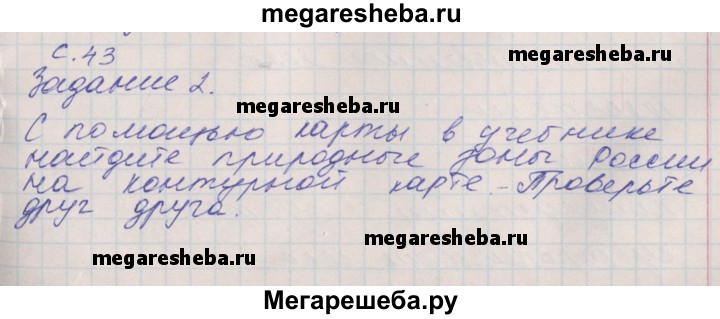 megaresheba.ru
с. 43
Задание 2.
megaresheba.ru
С помощью карты в учебнике
найдите природные зоны России
megaresheba.ru
на контурной карте. Проверьте
друг друга.
megaresheba.ru
megaresheba.ru
Мегарешеба.ру